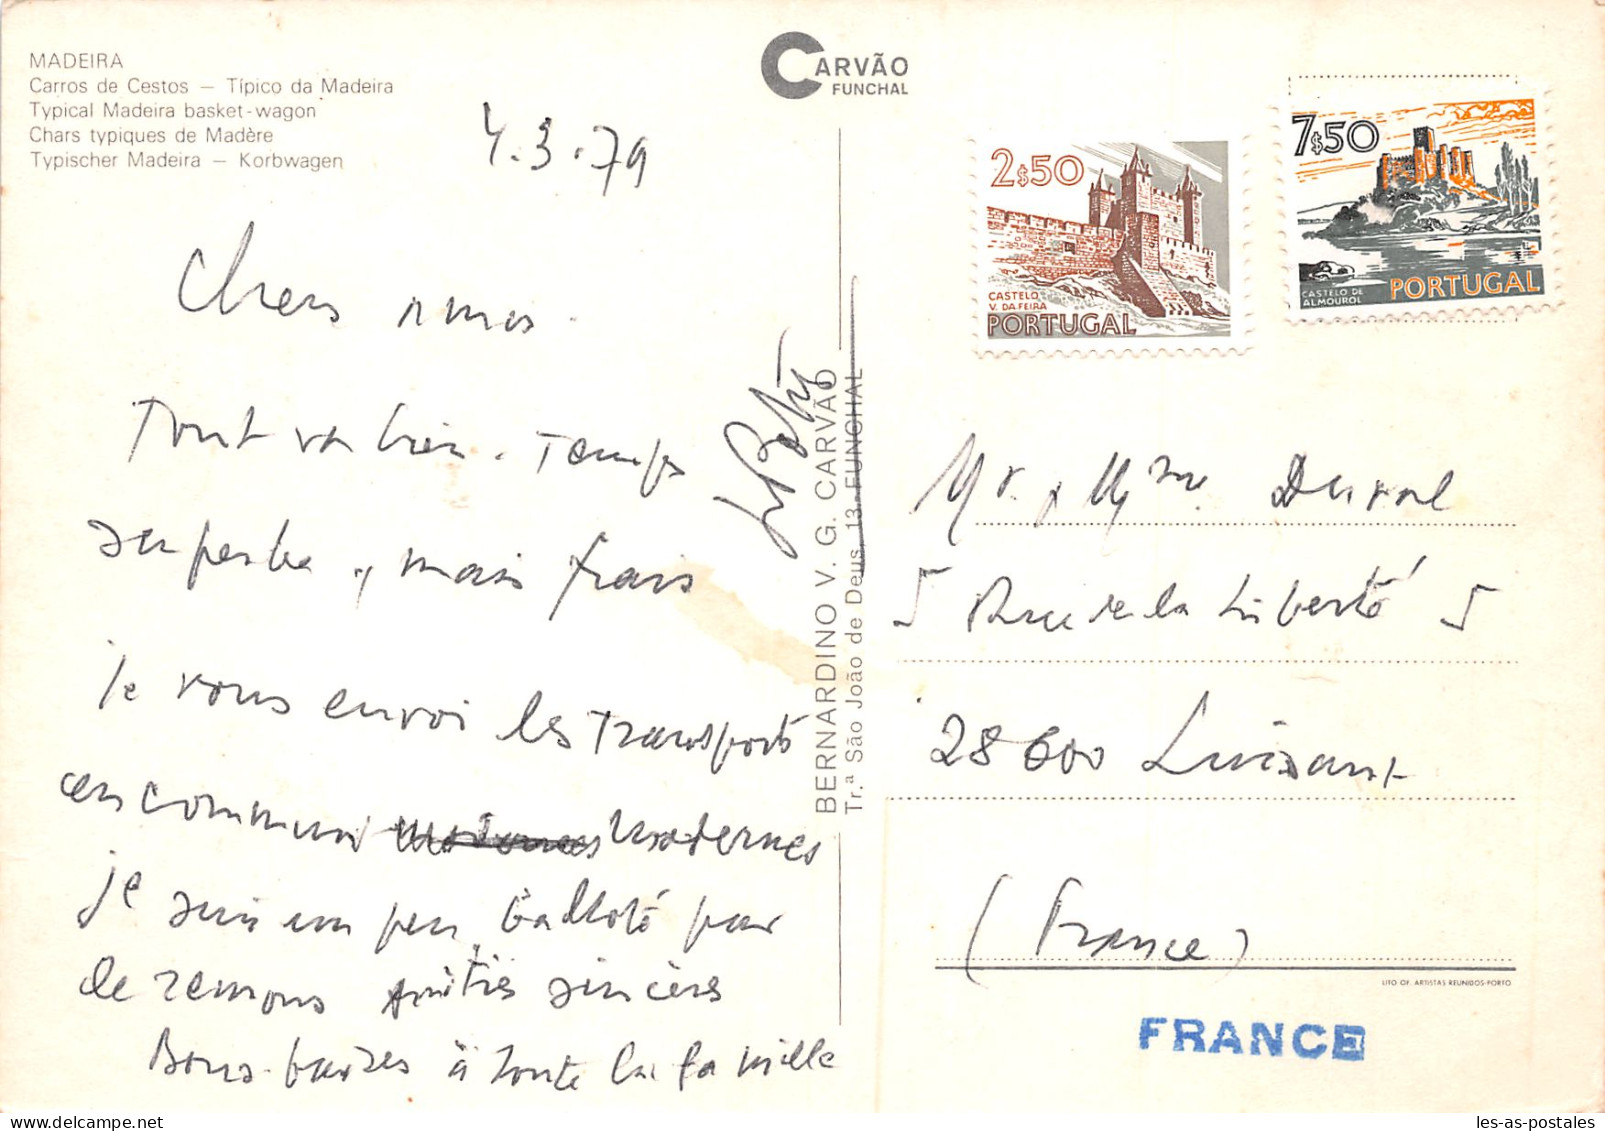 MADEIRA
Carros de Cestos — Típico da Madeira
Typical Madeira basket-wagon
Chars typiques de Madère
Typischer Madeira — Korbwagen
CARVÃO
FUNCHAL
4.3.79
Chers amis.
Tout va bien. Temps
superbe, mais frais
je vous envoi les transports
en commun modernes
je suis un peu balloté par
de remous Amitiés sincères
Bons baises à toute la famille
BERNARDINO V. G. CARVÃO
Tr.ª São João de Deus, 13-FUNCHAL
2$50
CASTELO
V. DA FEIRA
PORTUGAL
7$50
CASTELO DE
ALMOUROL
PORTUGAL
Mr. Mme. Duval
5 Rue de la Liberté 5
28600 Luisant
(France)
LITO OF. ARTISTAS REUNIDOS-PORTO
FRANCE
les-as-postales